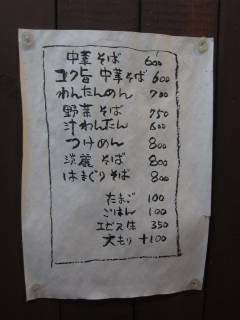 中華そば 600
コク旨中華そば 600
わんたんめん 700
野菜そば 750
汁わんたん 600
つけめん 800
淡麗そば 800
はまぐりそば 800
たまご 100
ごはん 100
エビス生 350
大もり +100